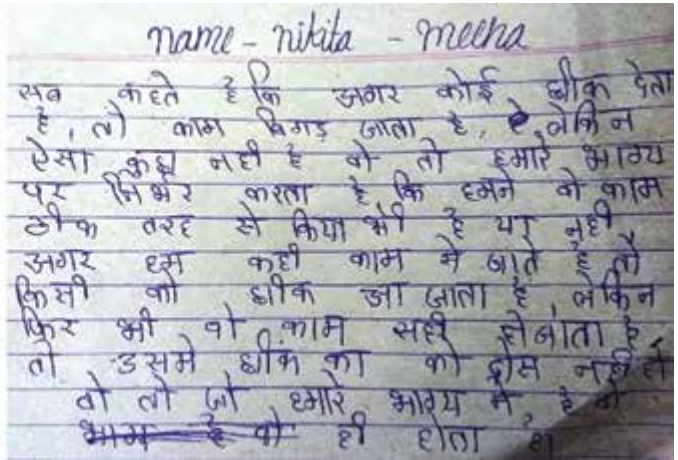 name - nikita - meena
सब कहते है कि अगर कोई छीक देता
है, तो काम बिगड़ जाता है, लेकिन
ऐसा कुछ नही है वो तो हमारे भाग्य
पर निर्भर करता है कि हमने वो काम
ठीक तरह से किया भी है या नही
अगर हम कही काम मे जाते है तो
किसी को छीक आ जाता है, लेकिन
फिर भी वो काम सही हो जाता है
तो उसमे छीक का को दोस नही है
वो तो जो हमारे भाग्य मे है वो
ही होता है